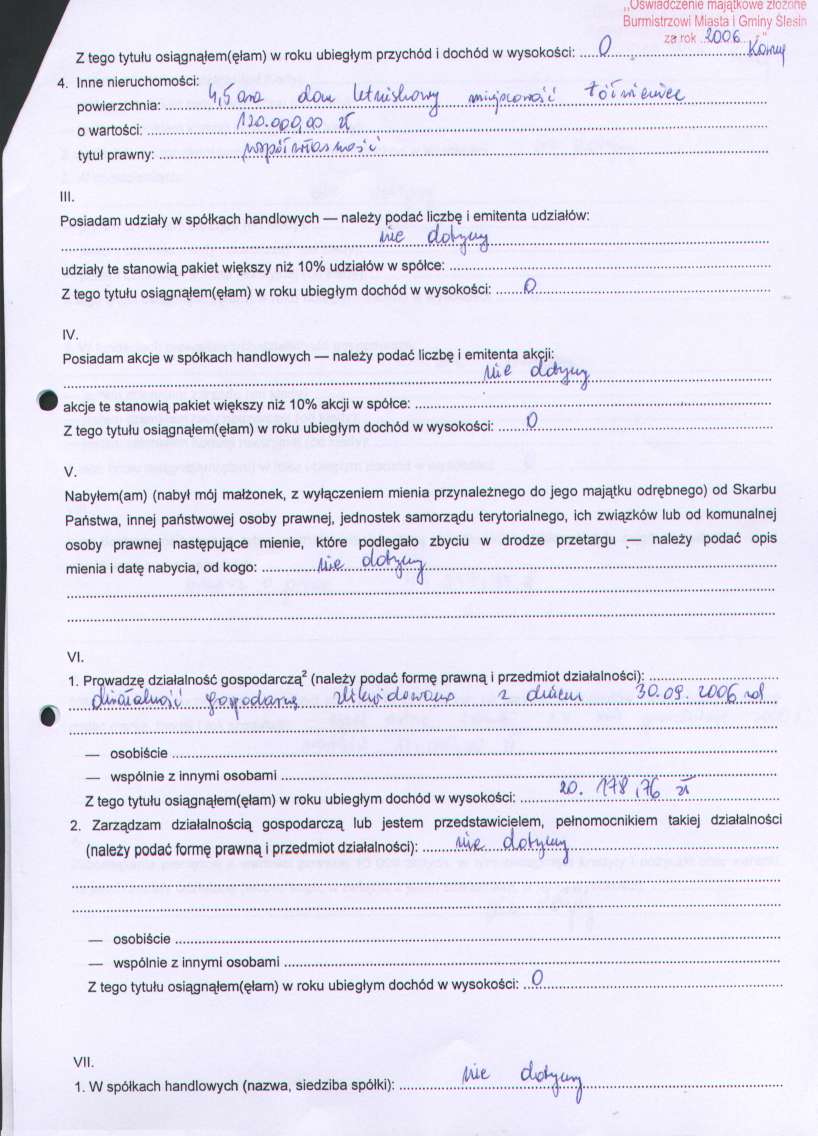 „Oświadczenie majątkowe złożone
Burmistrzowi Miasta i Gminy Ślesin
za rok ..2006....."
Z tego tytułu osiągnąłem(ęłam) w roku ubiegłym przychód i dochód w wysokości: ....0....
4. Inne nieruchomości:
powierzchnia: ....4,5 ara dom letniskowy miejscowość....
o wartości: ....120.000,00 zł....
tytuł prawny: ....współwłasność....
III.
Posiadam udziały w spółkach handlowych — należy podać liczbę i emitenta udziałów:
....nie dotyczy....
udziały te stanowią pakiet większy niż 10% udziałów w spółce: ....
Z tego tytułu osiągnąłem(ęłam) w roku ubiegłym dochód w wysokości: ....0....
IV.
Posiadam akcje w spółkach handlowych — należy podać liczbę i emitenta akcji:
....nie dotyczy....
akcje te stanowią pakiet większy niż 10% akcji w spółce: ....
Z tego tytułu osiągnąłem(ęłam) w roku ubiegłym dochód w wysokości: ....0....
V.
Nabyłem(am) (nabył mój małżonek, z wyłączeniem mienia przynależnego do jego majątku odrębnego) od Skarbu
Państwa, innej państwowej osoby prawnej, jednostek samorządu terytorialnego, ich związków lub od komunalnej
osoby prawnej następujące mienie, które podlegało zbyciu w drodze przetargu — należy podać opis
mienia i datę nabycia, od kogo: ....nie dotyczy....
VI.
1. Prowadzę działalność gospodarczą² (należy podać formę prawną i przedmiot działalności): ....
działalność gospodarczą zlikwidowano z dniem 30.09.2006 rok
— osobiście ....
— wspólnie z innymi osobami ....
Z tego tytułu osiągnąłem(ęłam) w roku ubiegłym dochód w wysokości: ....20.178,76 zł....
2. Zarządzam działalnością gospodarczą lub jestem przedstawicielem, pełnomocnikiem takiej działalności
(należy podać formę prawną i przedmiot działalności): ....nie dotyczy....
— osobiście ....
— wspólnie z innymi osobami ....
Z tego tytułu osiągnąłem(ęłam) w roku ubiegłym dochód w wysokości: ..0....
VII.
1. W spółkach handlowych (nazwa, siedziba spółki): ....nie dotyczy....